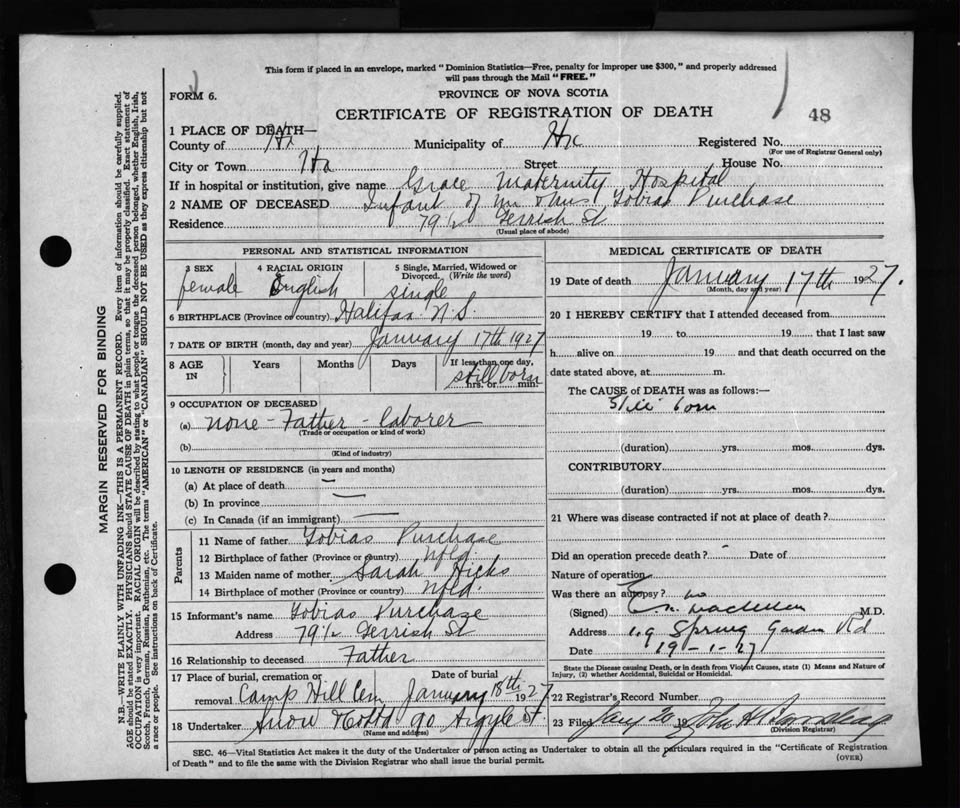 This form if placed in an envelope, marked "Dominion Statistics—Free, penalty for improper use $300," and properly addressed
will pass through the Mail "FREE."
FORM 6.
PROVINCE OF NOVA SCOTIA
CERTIFICATE OF REGISTRATION OF DEATH
48
1 PLACE OF DEATH—
County of Hx Municipality of Hx Registered No.
(For use of Registrar General only)
City or Town Hx Street House No.
If in hospital or institution, give name Grace Maternity Hospital
2 NAME OF DECEASED Infant of Mr & Mrs Tobias Purchase
Residence 79 1/2 Gerrish St
(Usual place of abode)
PERSONAL AND STATISTICAL INFORMATION
3 SEX 4 RACIAL ORIGIN 5 Single, Married, Widowed or Divorced. (Write the word)
female English single
6 BIRTHPLACE (Province or country) Halifax N.S.
7 DATE OF BIRTH (month, day and year) January 17th 1927
8 AGE IN Years Months Days If less than one day, hrs. or min.
still born
9 OCCUPATION OF DECEASED
(a) none - Father - laborer
(Trade or occupation or kind of work)
(b)
(Kind of industry)
10 LENGTH OF RESIDENCE (in years and months)
(a) At place of death —
(b) In province —
(c) In Canada (if an immigrant) —
Parents
11 Name of father Tobias Purchase
12 Birthplace of father (Province or country) Nfld.
13 Maiden name of mother Sarah Hicks
14 Birthplace of mother (Province or country) Nfld.
15 Informant's name Tobias Purchase
Address 79 1/2 Gerrish St
16 Relationship to deceased Father
17 Place of burial, cremation or removal Camp Hill Cem Date of burial January 18th 1927
18 Undertaker Snow 90 Argyle St.
(Name and address)
MEDICAL CERTIFICATE OF DEATH
19 Date of death January 17th 1927.
(Month, day and year)
20 I HEREBY CERTIFY that I attended deceased from
19 to 19 that I last saw
h alive on 19 and that death occurred on the
date stated above, at m.
The CAUSE of DEATH was as follows:
Still born
(duration) yrs. mos. dys.
CONTRIBUTORY
(duration) yrs. mos. dys.
21 Where was disease contracted if not at place of death?
Did an operation precede death? - Date of
Nature of operation
Was there an autopsy? no
(Signed) M.D.
Address Spring Garden Rd
Date 19-1-27
State the Disease causing Death, or in death from Violent Causes, state (1) Means and Nature of
Injury, (2) whether Accidental, Suicidal or Homicidal.
22 Registrar's Record Number
23 Filed Jany 20 19
(Division Registrar)
SEC. 46—Vital Statistics Act makes it the duty of the Undertaker or person acting as Undertaker to obtain all the particulars required in the "Certificate of Registration
of Death" and to file the same with the Division Registrar who shall issue the burial permit.
(OVER)
MARGIN RESERVED FOR BINDING
N.B.—WRITE PLAINLY WITH UNFADING INK—THIS IS A PERMANENT RECORD. Every item of information should be carefully supplied.
AGE should be stated EXACTLY. PHYSICIANS should STATE CAUSE OF DEATH in plain terms, so that it may be properly classified. Exact statement of
OCCUPATION is very important. RACIAL ORIGIN will be described by stating to what people or tongue the deceased person belonged, whether English, Irish,
Scotch, French, German, Russian, Ruthenian, etc. The terms "AMERICAN" or "CANADIAN" SHOULD NOT BE USED as they express citizenship but not
a race or people. See instructions on back of Certificate.